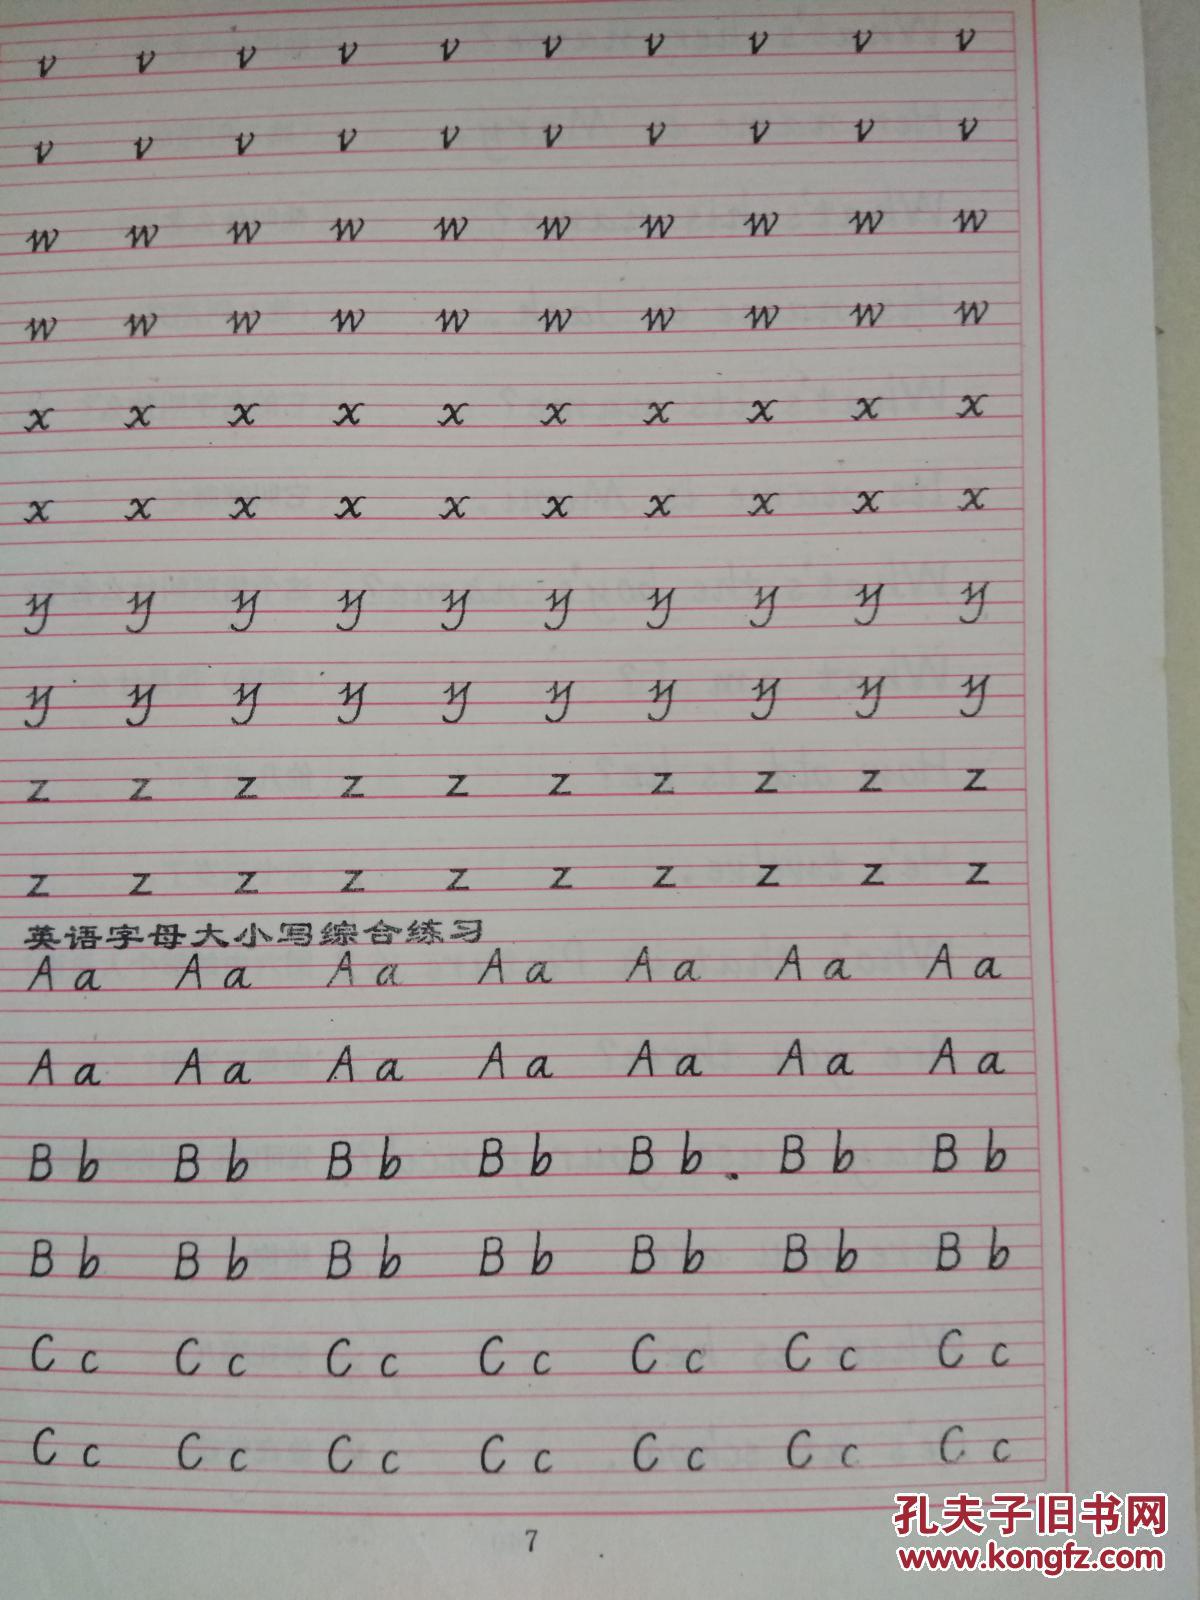 v v v v v v v v v v
v v v v v v v v v v
w w w w w w w w w w
w w w w w w w w w w
x x x x x x x x x x
x x x x x x x x x x
y y y y y y y y y y
y y y y y y y y y y
z z z z z z z z z z
z z z z z z z z z z
英语字母大小写综合练习
A a A a A a A a A a A a A a
A a A a A a A a A a A a A a
B b B b B b B b B b B b B b
B b B b B b B b B b B b B b
C c C c C c C c C c C c C c
C c C c C c C c C c C c C c
7
孔夫子旧书网
www.kongfz.com